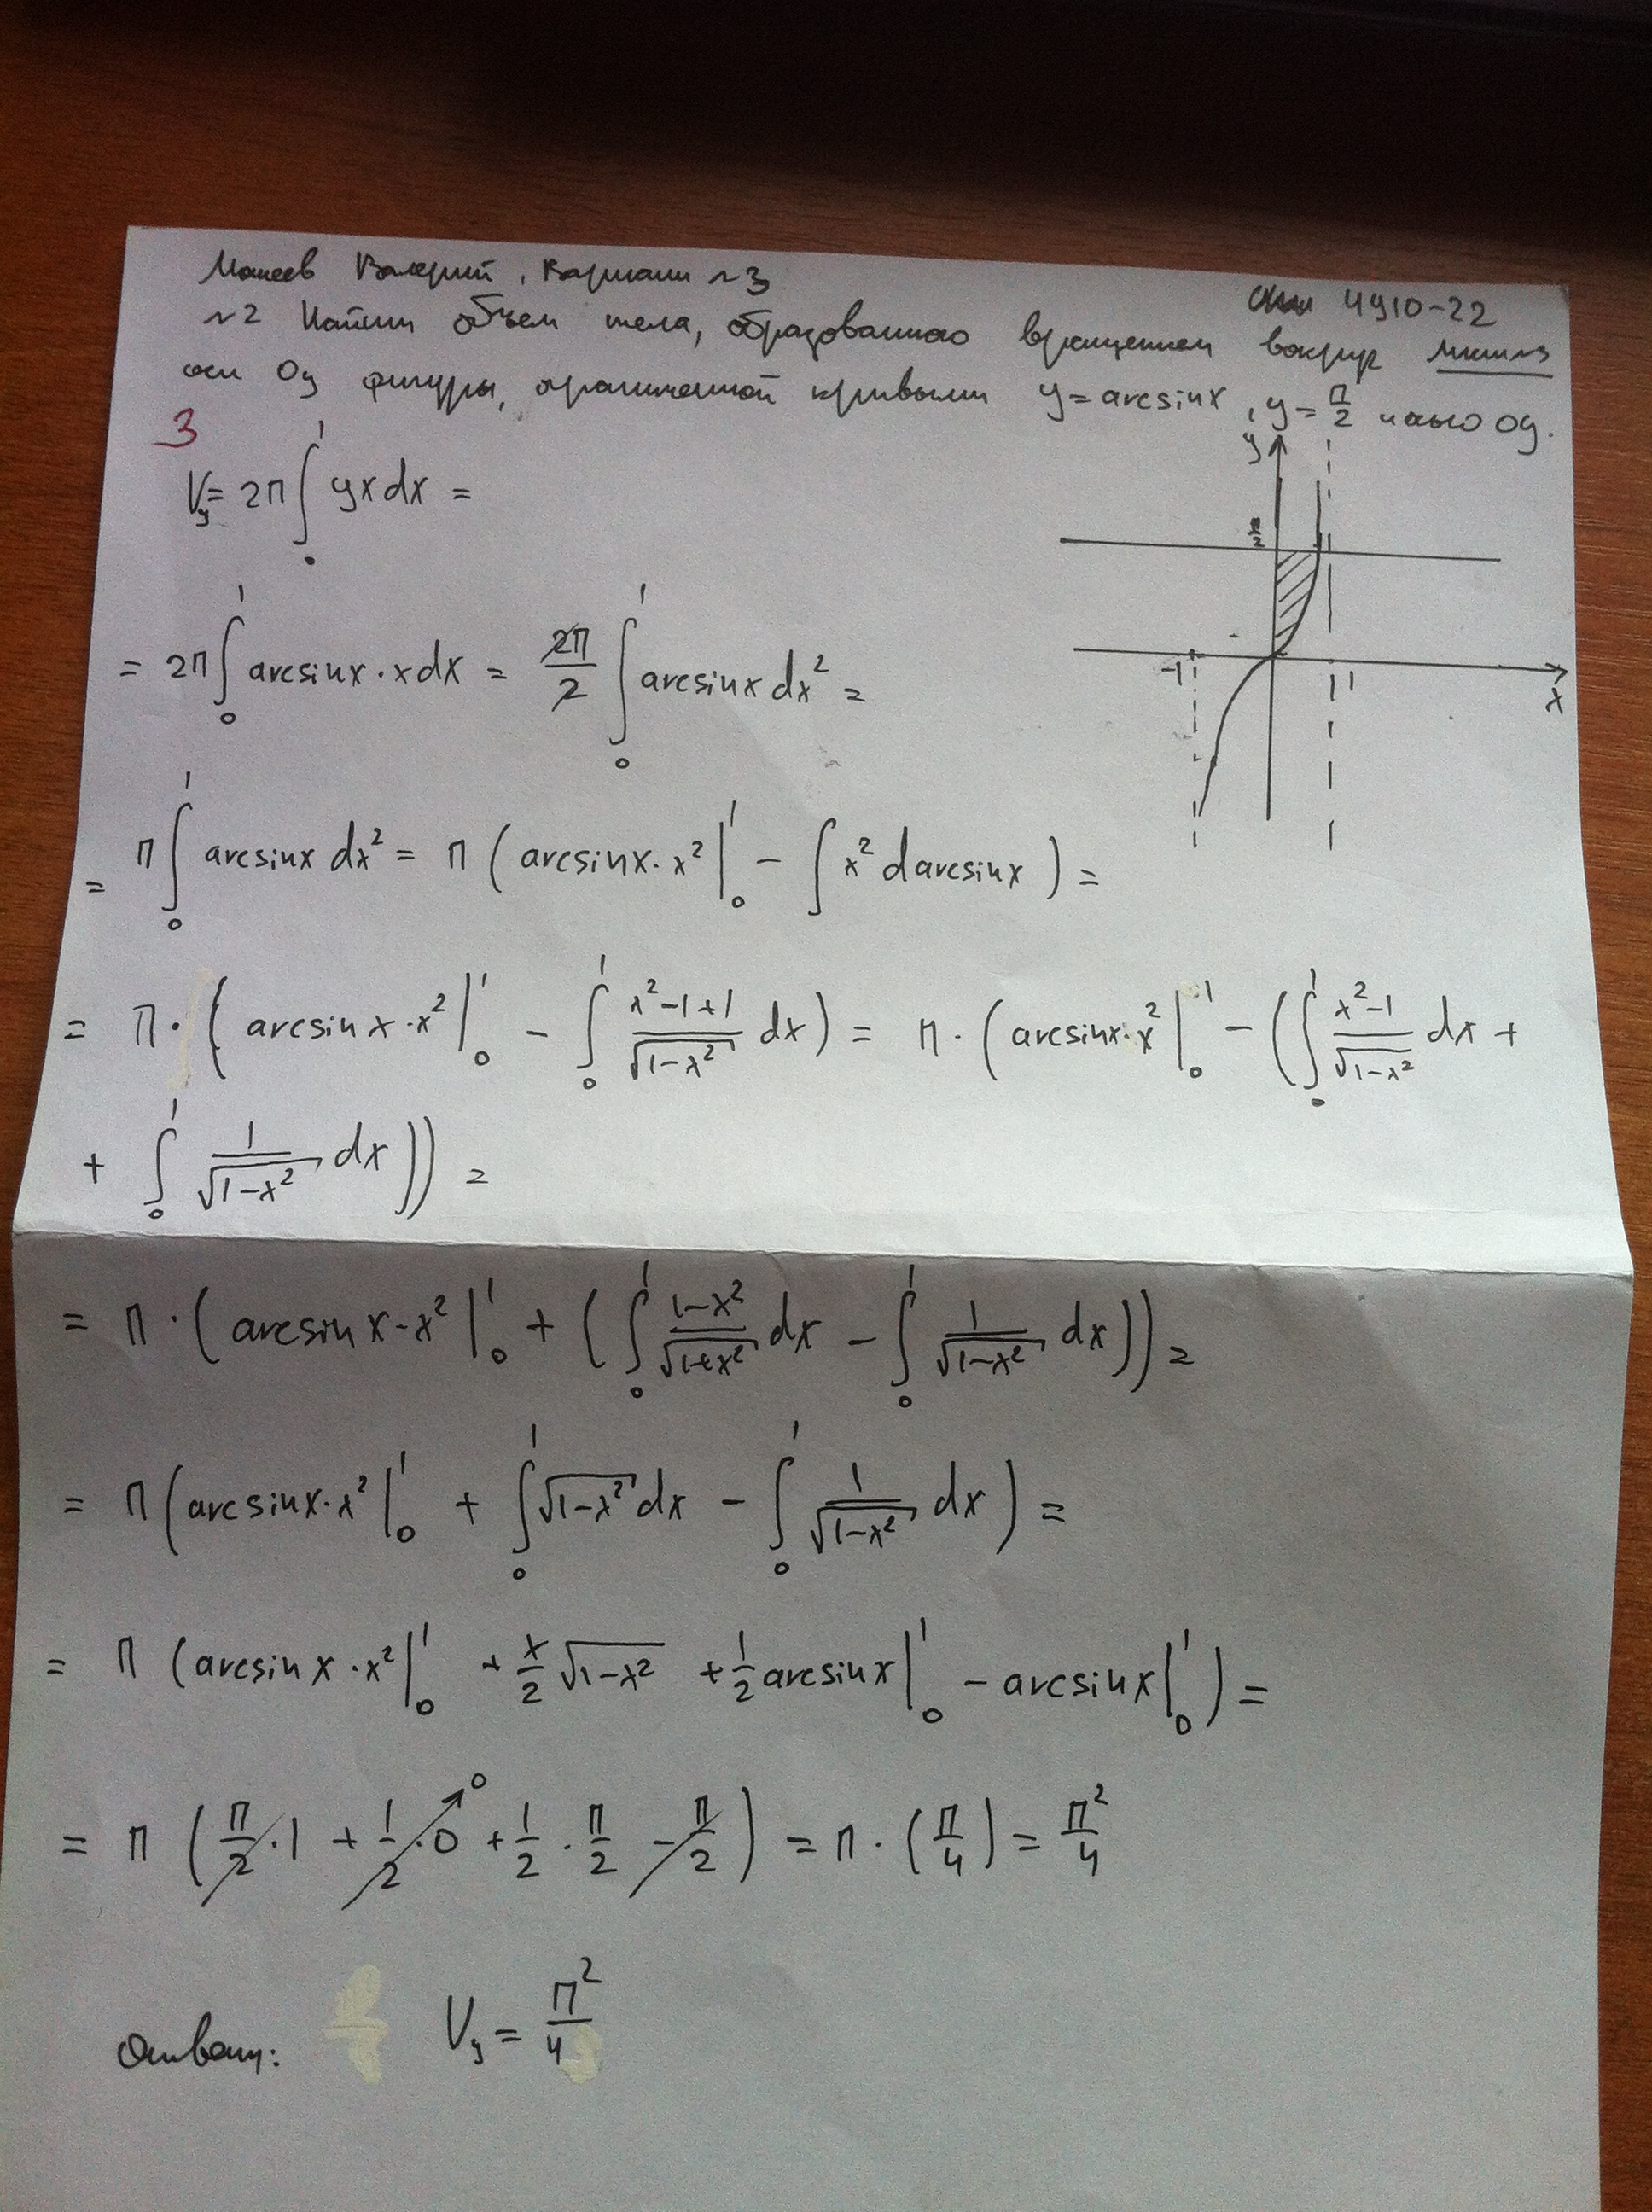 Валерий, Вариант №3
4910-22
№2 Найти объем тела, образованного вращением вокруг
оси Oy фигуры, ограниченной кривыми y = arcsinx, y = π/2 и осью Oy.
3
V_y = 2π ∫₀¹ yx dx =
= 2π ∫₀¹ arcsinx · x dx = 2π/2 ∫₀¹ arcsinx dx² =
= π ∫₀¹ arcsinx dx² = π (arcsinx · x² |₀¹ − ∫ x² d arcsinx) =
= π · (arcsinx · x² |₀¹ − ∫₀¹ (x²−1+1)/√(1−x²) dx) = π · (arcsinx · x² |₀¹ − (∫₀¹ (x²−1)/√(1−x²) dx +
+ ∫₀¹ 1/√(1−x²) dx)) =
= π · (arcsinx · x² |₀¹ + (∫₀¹ (1−x²)/√(1±x²) dx − ∫₀¹ 1/√(1−x²) dx)) =
= π (arcsinx · x² |₀¹ + ∫₀¹ √(1−x²) dx − ∫₀¹ 1/√(1−x²) dx) =
= π (arcsinx · x² |₀¹ + x/2 √(1−x²) + 1/2 arcsinx |₀¹ − arcsinx |₀¹) =
= π (π/2 · 1 + 1/2 · 0 + 1/2 · π/2 − π/2) = π · (π/4) = π²/4
0
Ответ: V_y = π²/4
y
π/2
-1
1
x